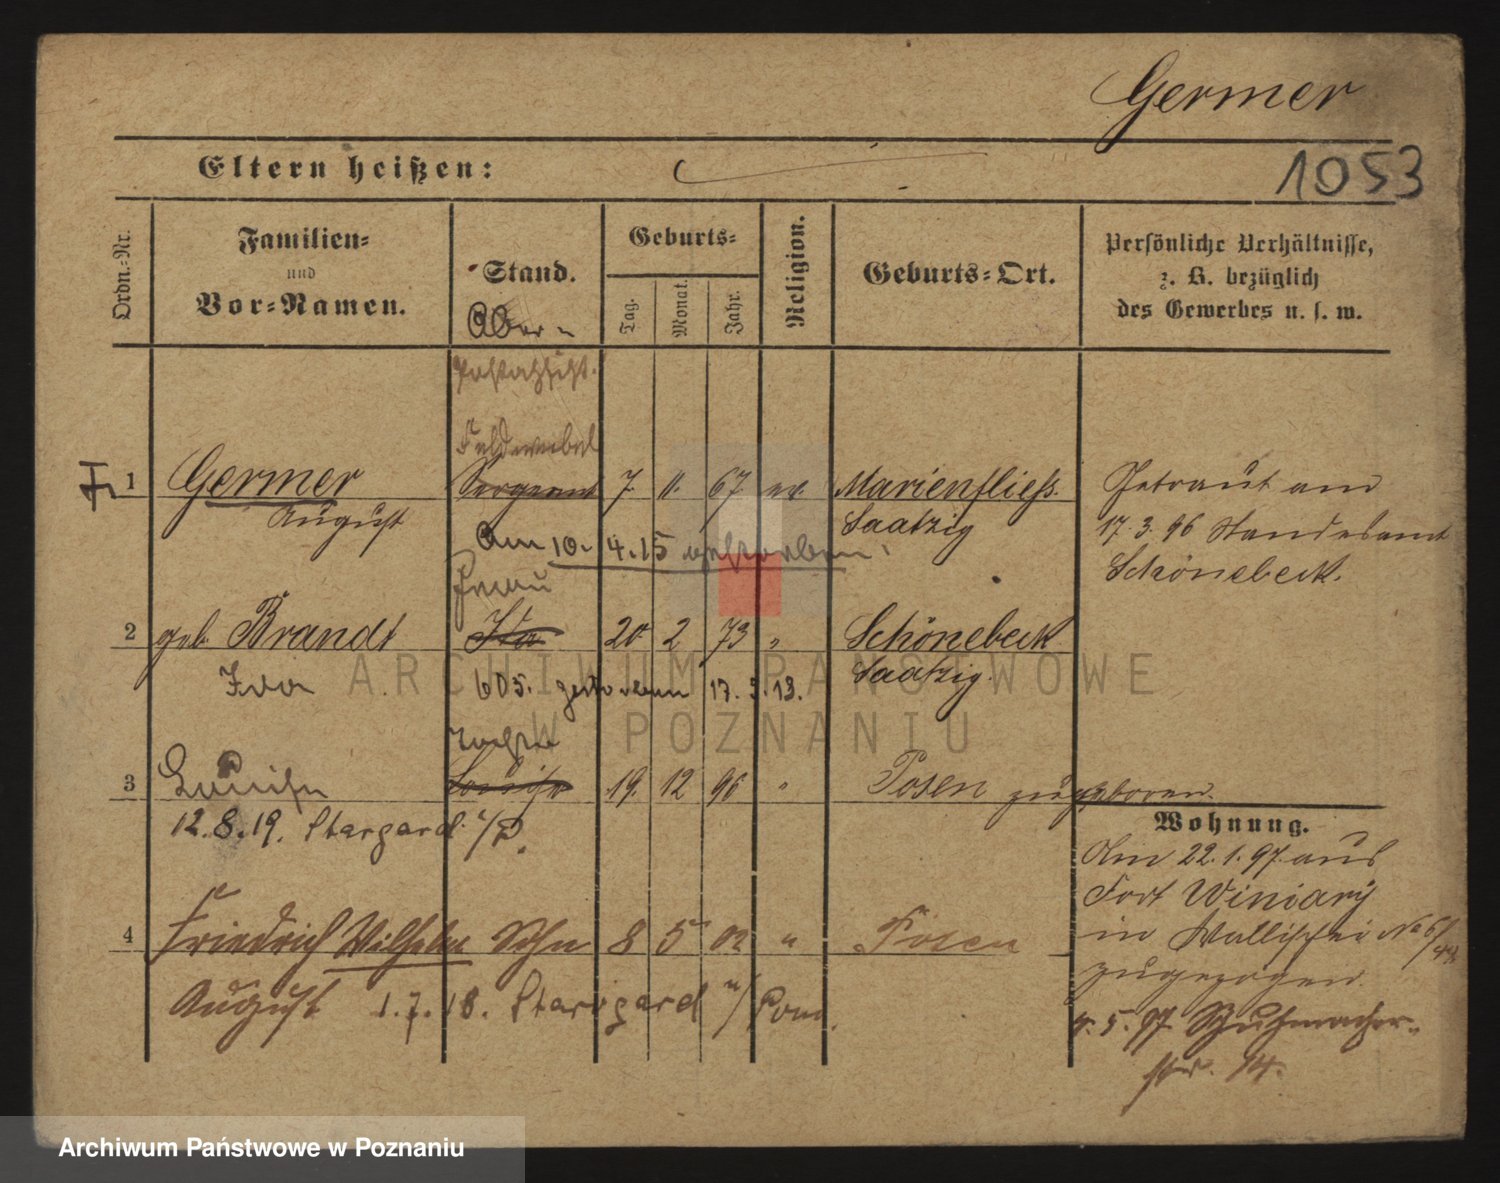 Germer
1053
Eltern heißen:
Ordn.-Nr.
Familien-
und
Vor-Namen.
Stand.
Geburts-
Tag.
Monat.
Jahr.
Religion.
Geburts-Ort.
Persönliche Verhältnisse,
z. B. bezüglich
des Gewerbes u. s. w.
Ober-
Postassist.
Feldwebel
1 Germer Sergeant 7. 11. 67 ev. Marienfliess. Getraut am
August Saatzig 17. 3. 96 Standesamt
Am 10. 4. 15 gestorben. Schönebeck.
Frau
2 geb. Brandt Ida 20 2 73 " Schönebeck
Ida 605. gestorben 17. 3. 13. Saatzig.
Tochter
3 Louise Louise 19. 12 96 " Posen zugeboren.
12. 8. 19. Stargard i/P.
Wohnung.
Am 22. 1. 97 aus
Fort Winiary
4 Friedrich Wilhelm Sohn 8 5 02 " Posen
in Wallischei No 6/
zugezogen.
August 1. 7. 18. Stargard i/Pom.
4. 5. 97. Schuhmacher-
str. 14.
ARCHIWUM PAŃSTWOWE
W POZNANIU
Archiwum Państwowe w Poznaniu